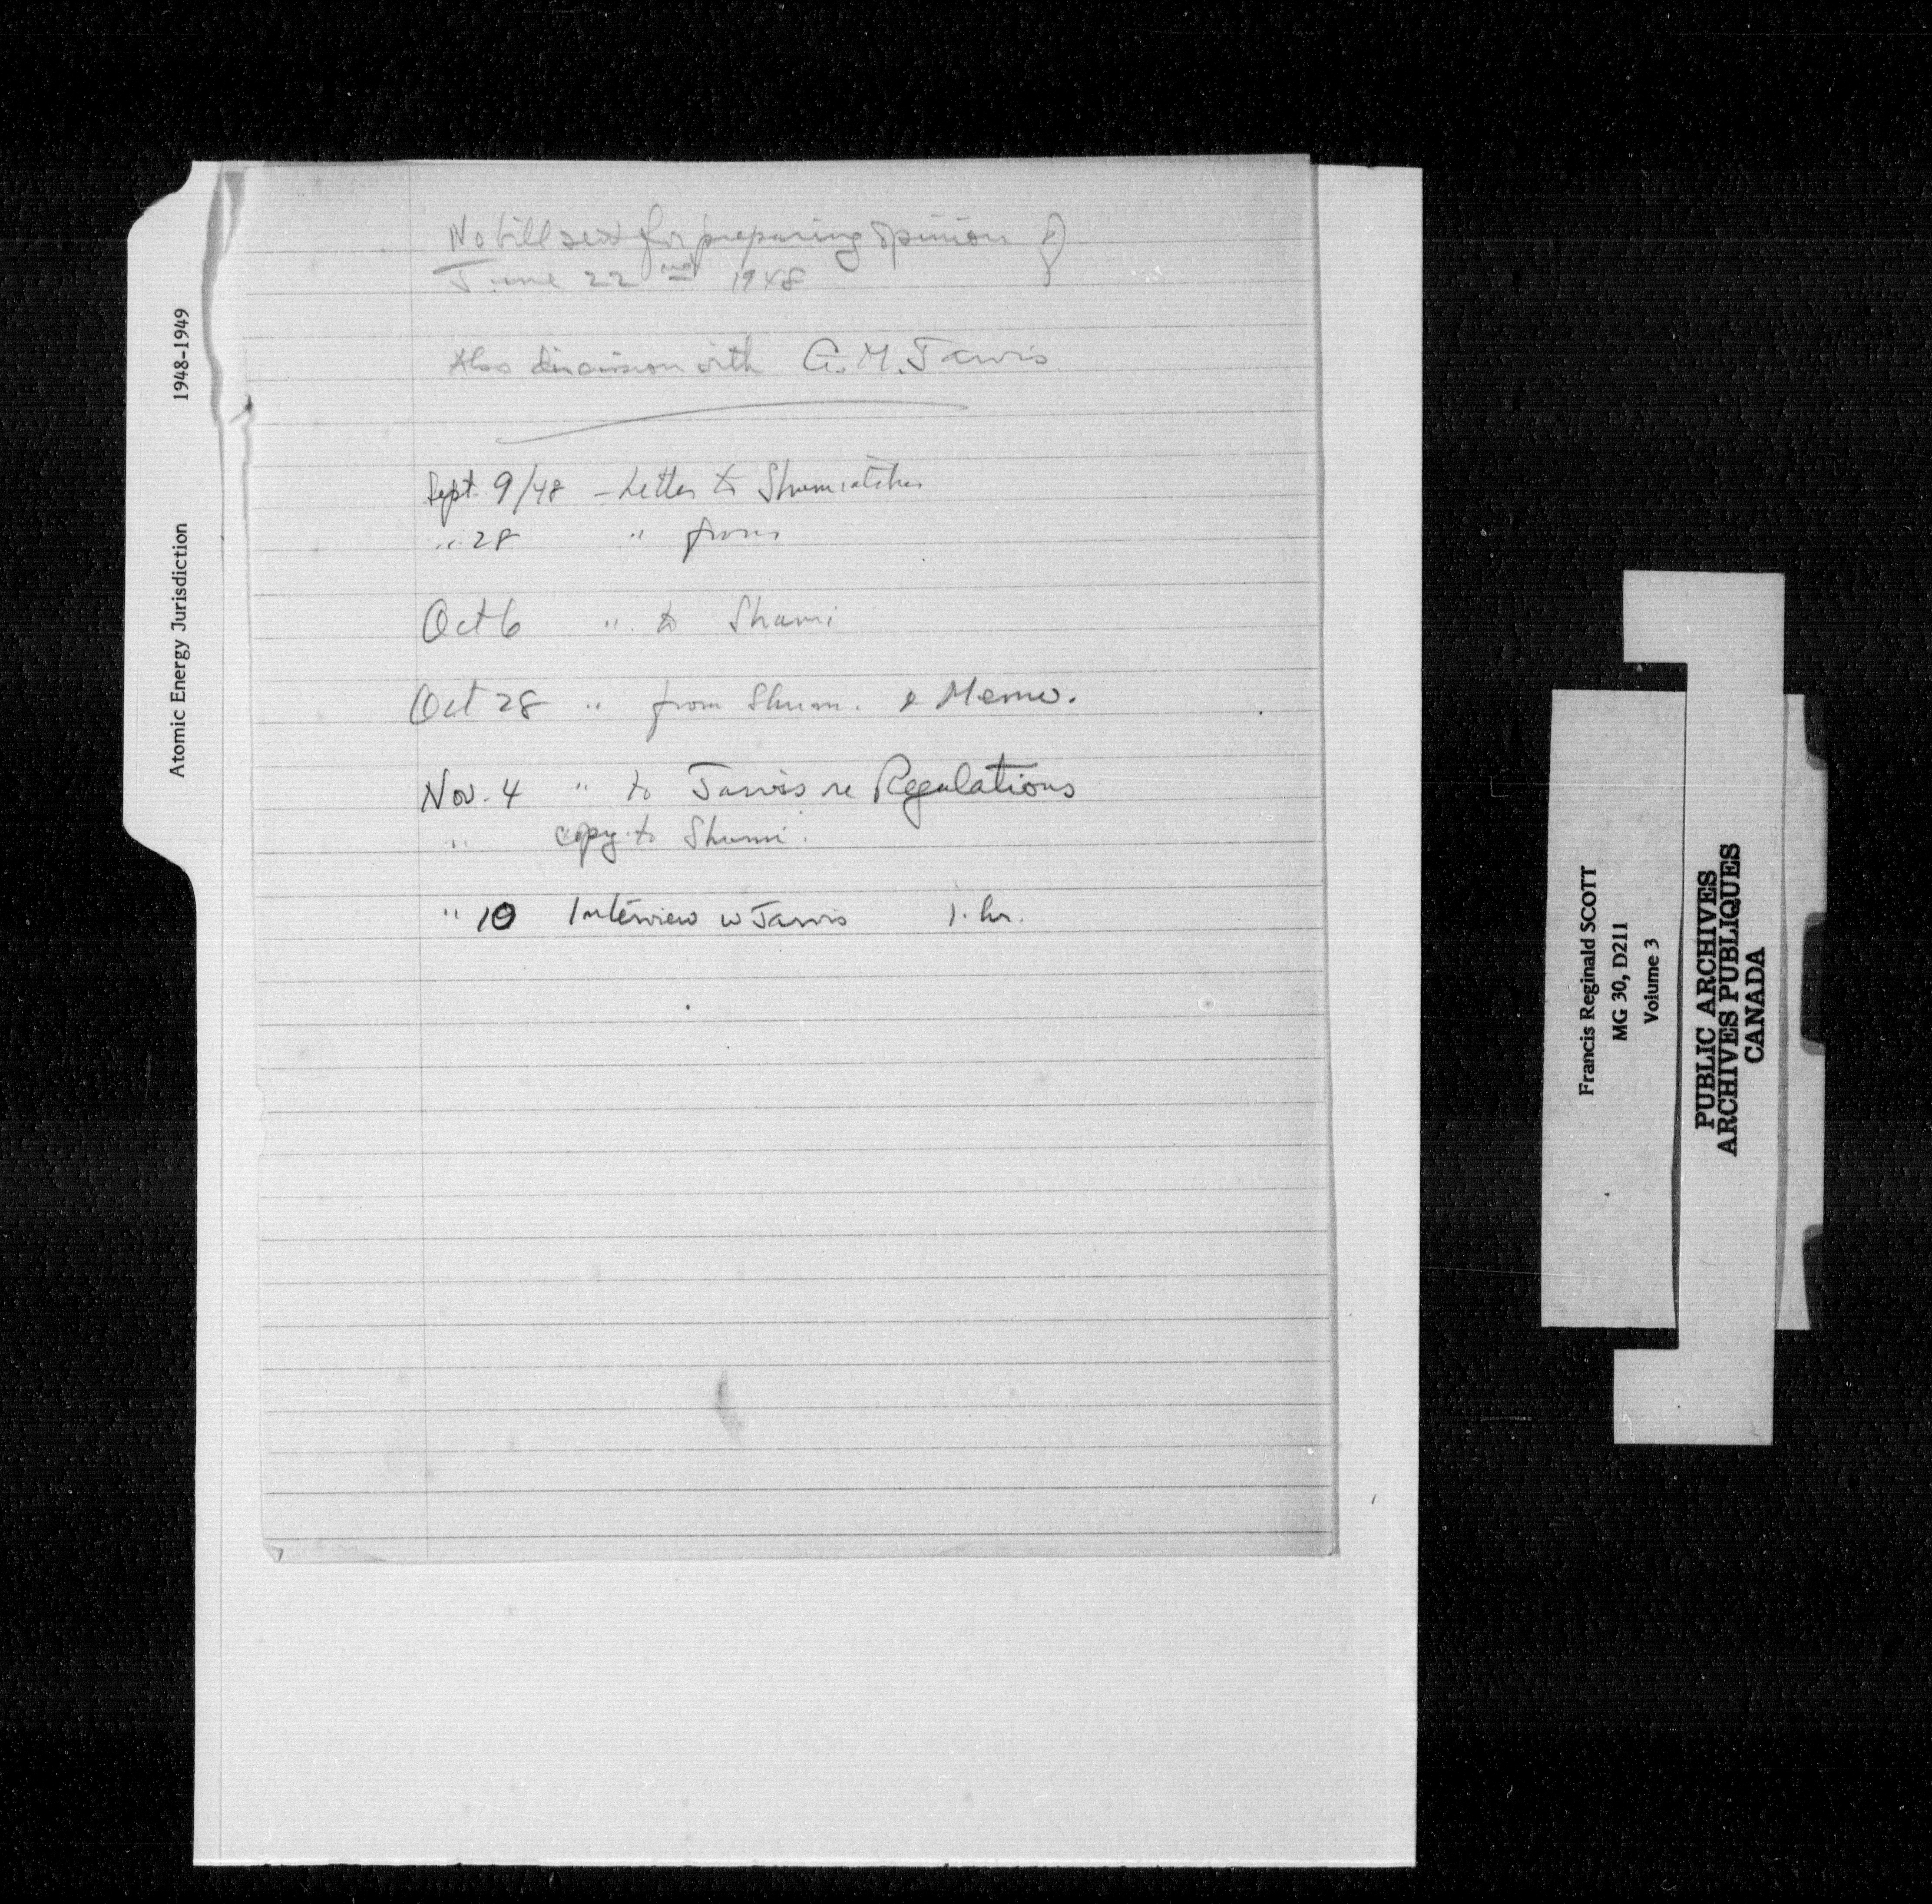 No bill sent for preparing opinion of
June 22nd 1948
Also discussion with G.M. Jarvis.
Sept. 9/48 - Letter to Shumiatcher
" 28 " from
Oct 6 " to Shumi
Oct 28 " from Shum. & Memo.
Nov. 4 " to Jarvis re Regulations
" copy to Shumi.
" 10 Interview w Jarvis 1. hr.
Atomic Energy Jurisdiction 1948-1949
Francis Reginald SCOTT
MG 30, D211
Volume 3
PUBLIC ARCHIVES
ARCHIVES PUBLIQUES
CANADA